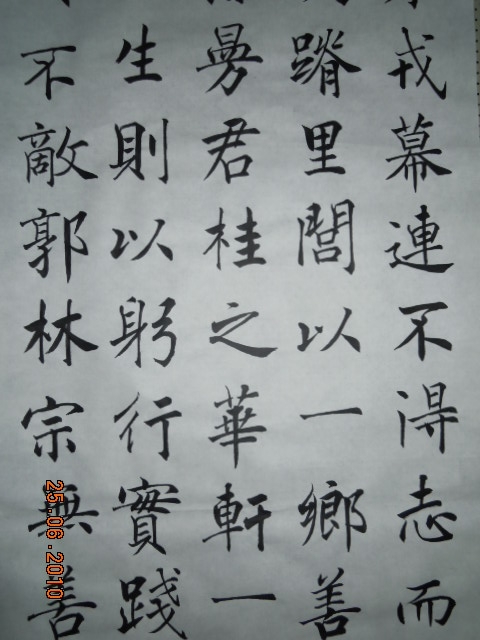 戎幕連不淂志而
蹐里閭以一鄉善
君桂之華軒一
生則以躬行實踐
不敵郭林宗無善
25.06.2010